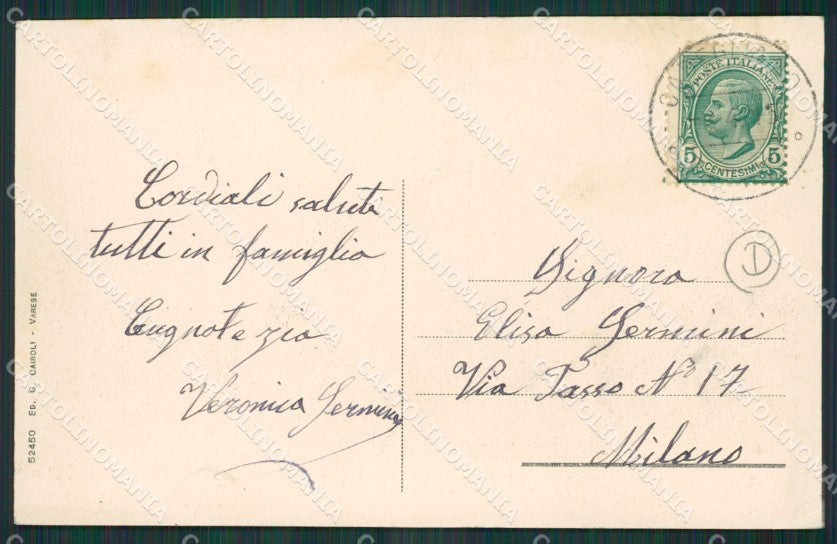 Cordiali saluti
tutti in famiglia
Cugnot e zia
Veronica Sermini
Signora
Elisa Sermini
Via Tasso N° 17
Milano
D
POSTE ITALIANE
5 CENTESIMI 5
52450 ED. G. CAIROLI - VARESE
CARTOLINOMANIA